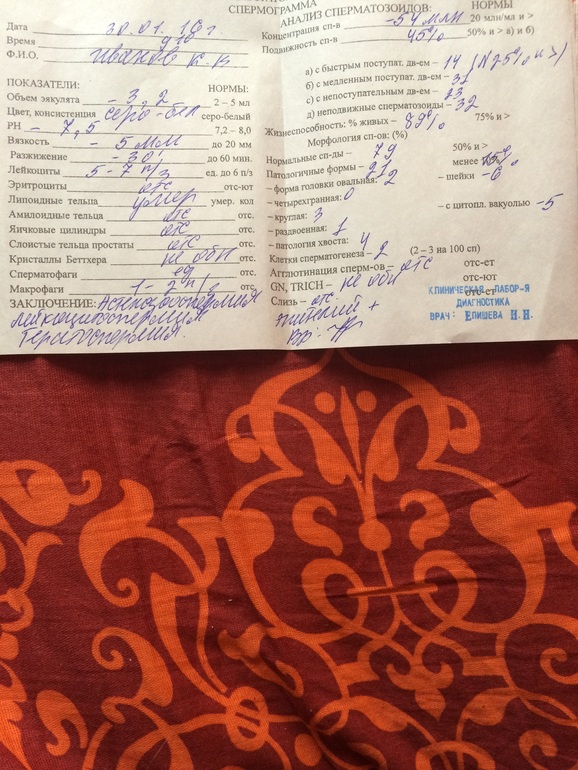 СПЕРМОГРАММА
Дата 30.01.18 г.
Время 9 10
Ф.И.О. Иванов К. В
ПОКАЗАТЕЛИ: НОРМЫ:
Объем эякулята - 3,2 2 – 5 мл
Цвет, консистенция серо-бел серо-белый
PH - 7,5 7,2 – 8,0
Вязкость - 5 мм до 20 мм
Разжижение - 30' до 60 мин.
Лейкоциты 5 - 7 п/з ед. до 6 п/з
Эритроциты отс отс-ют
Липоидные тельца умер умер. кол
Амилоидные тельца отс отс.
Яичковые цилиндры отс отс.
Слоистые тельца простаты отс отс.
Кристаллы Беттхера не обн отс.
Сперматофаги ед отс.
Макрофаги 1 - 2 п/з отс.
ЗАКЛЮЧЕНИЕ: Астенозооспермия
Лейкоцитоспермия
Тератоспермия.
АНАЛИЗ СПЕРМАТОЗОИДОВ: НОРМЫ
Концентрация сп-в -54 млн 20 млн/мл и >
Подвижность сп-в 45% 50% и > а) и б)
а) с быстрым поступат. дв-ем – 14 (N 25% и >)
б) с медленным поступат. дв-ем – 31
с) с непоступательным дв-ем – 23
д) неподвижные сперматозоиды – 32
Жизнеспособность: % живых – 83% 75% и >
Морфология сп-ов: (%)
Нормальные сп-ды – 79 50% и >
Патологичные формы – 21 менее 15%
– форма головки овальная: 2 – шейки – 6
– четырехгранная: 0
– круглая: 3 – с цитопл. вакуолью – 5
– раздвоенная: 1
– патология хвоста: 4
Клетки сперматогенеза – 2 (2 – 3 на 100 сп)
Агглютинация сперм-ов – отс отс-ет
GN, TRICH – не обн отс-ют
Слизь – отс. отс-ет
Эпителий +
Вр:
КЛИНИЧЕСКАЯ ЛАБОР-Я
ДИАГНОСТИКА
ВРАЧ: ЕПИШЕВА Н.Н.